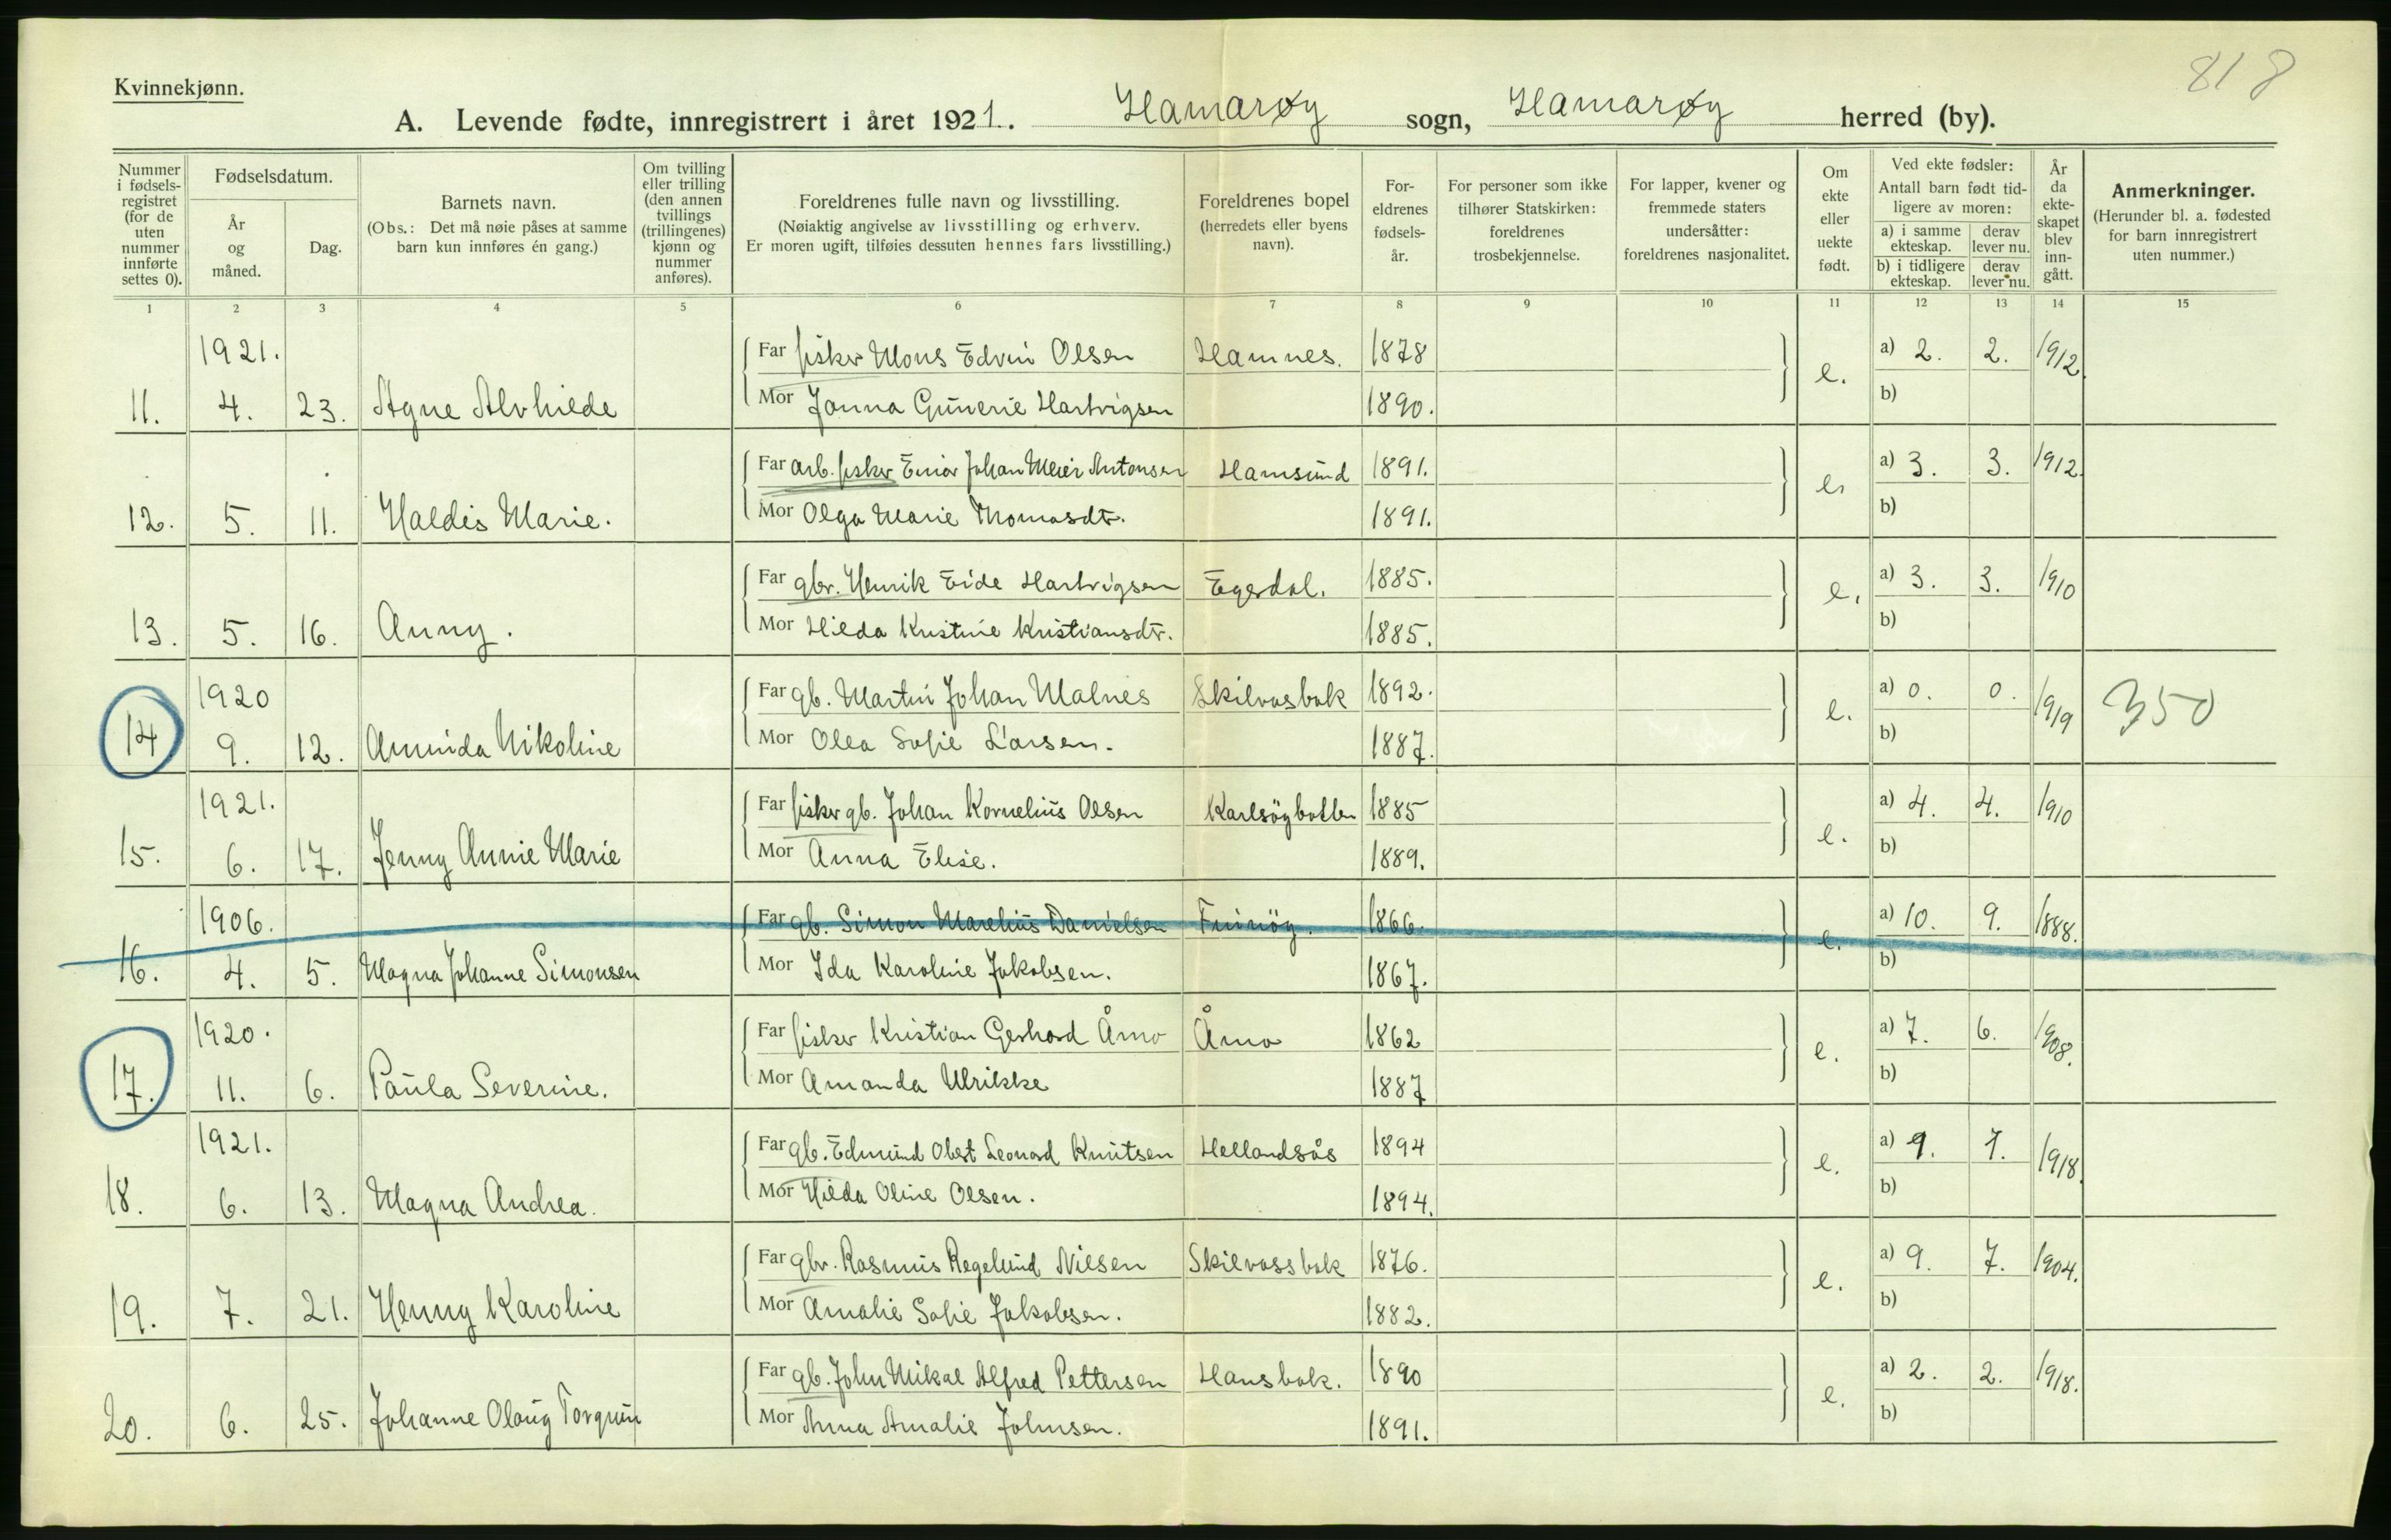 818
Kvinnekjønn.
A. Levende fødte, innregistrert i året 1921. Hamarøy sogn, Hamarøy herred (by).
Nummer i fødselsregistret (for de uten nummer innførte settes 0).
Fødselsdatum.
År og måned.
Dag.
Barnets navn.
(Obs.: Det må nøie påses at samme barn kun innføres én gang.)
Om tvilling eller trilling (den annen tvillings (trillingenes) kjønn og nummer anføres).
Foreldrenes fulle navn og livsstilling.
(Nøiaktig angivelse av livsstilling og erhverv.
Er moren ugift, tilføies dessuten hennes fars livsstilling.)
Foreldrenes bopel
(herredets eller byens navn).
Foreldrenes fødselsår.
For personer som ikke tilhører Statskirken: foreldrenes trosbekjennelse.
For lapper, kvener og fremmede staters undersåtter: foreldrenes nasjonalitet.
Om ekte eller uekte født.
Ved ekte fødsler:
Antall barn født tidligere av moren:
a) i samme ekteskap. derav lever nu.
b) i tidligere ekteskap. derav lever nu.
År da ekteskapet blev inngått.
Anmerkninger.
(Herunder bl. a. fødested for barn innregistrert uten nummer.)
1 2 3 4 5 6 7 8 9 10 11 12 13 14 15
1921. Far fisker Mons Edvin Olsen Hamnes. 1878 e. a) 2. 2. 1912.
11. 4. 23. Agne Alvhilde Mor Jonna Gunerie Hartvigsen 1890. b)
Far arb. fisker Einar Johan Meier Antonsen Hamsund 1891. e. a) 3. 3. 1912.
12. 5. 11. Haldis Marie. Mor Olga Marie Thomasdtr. 1891. b)
Far gbr. Henrik Eide Hartvigsen Egerdal. 1885. e. a) 3. 3. 1910
13. 5. 16. Anny. Mor Hilda Kristine Kristiansdtr. 1885. b)
1920 Far gb. Martin Johan Malnes Skilvasbak 1892. e. a) 0. 0. 1919 350
14 9. 12. Nikoline Mor Olea Sofie Larsen. 1887. b)
1921. Far fisker gb. Johan Kornelius Olsen Karlsöybotten 1885 e. a) 4. 4. 1910
15. 6. 17. Jenny Annie Marie Mor Anna Elise. 1889. b)
1906. Far gb. Simon Marelius Danielsen Finnöy. 1866. e. a) 10. 9. 1888.
16. 4. 5. Magna Johanne Simonsen Mor Ida Karoline Jakobsen. 1867. b)
1920. Far fisker Kristian Gerhard Åmo Åmo 1862 e. a) 7. 6. 1908.
17. 11. 6. Paula Severine. Mor Amanda Ulrikke 1887 b)
1921. Far gb. Edmund Obert Leonard Knutsen Hellandsås 1894 e. a) 1. 1. 1918.
18. 6. 13. Magna Andrea. Mor Hilda Oline Olsen. 1894. b)
Far gbr. Rasmus Regelund Nilsen Skilvassbak 1876. e. a) 9. 7. 1904.
19. 7. 21. Henny Karoline Mor Amalie Sofie Jakobsen. 1882. b)
Far gb. John Mikal Alfred Pettersen Hansbak. 1890 e. a) 2. 2. 1918.
20. 6. 25. Johanne Olaug Torgun Mor Anna Amalie Johnsen. 1891. b)